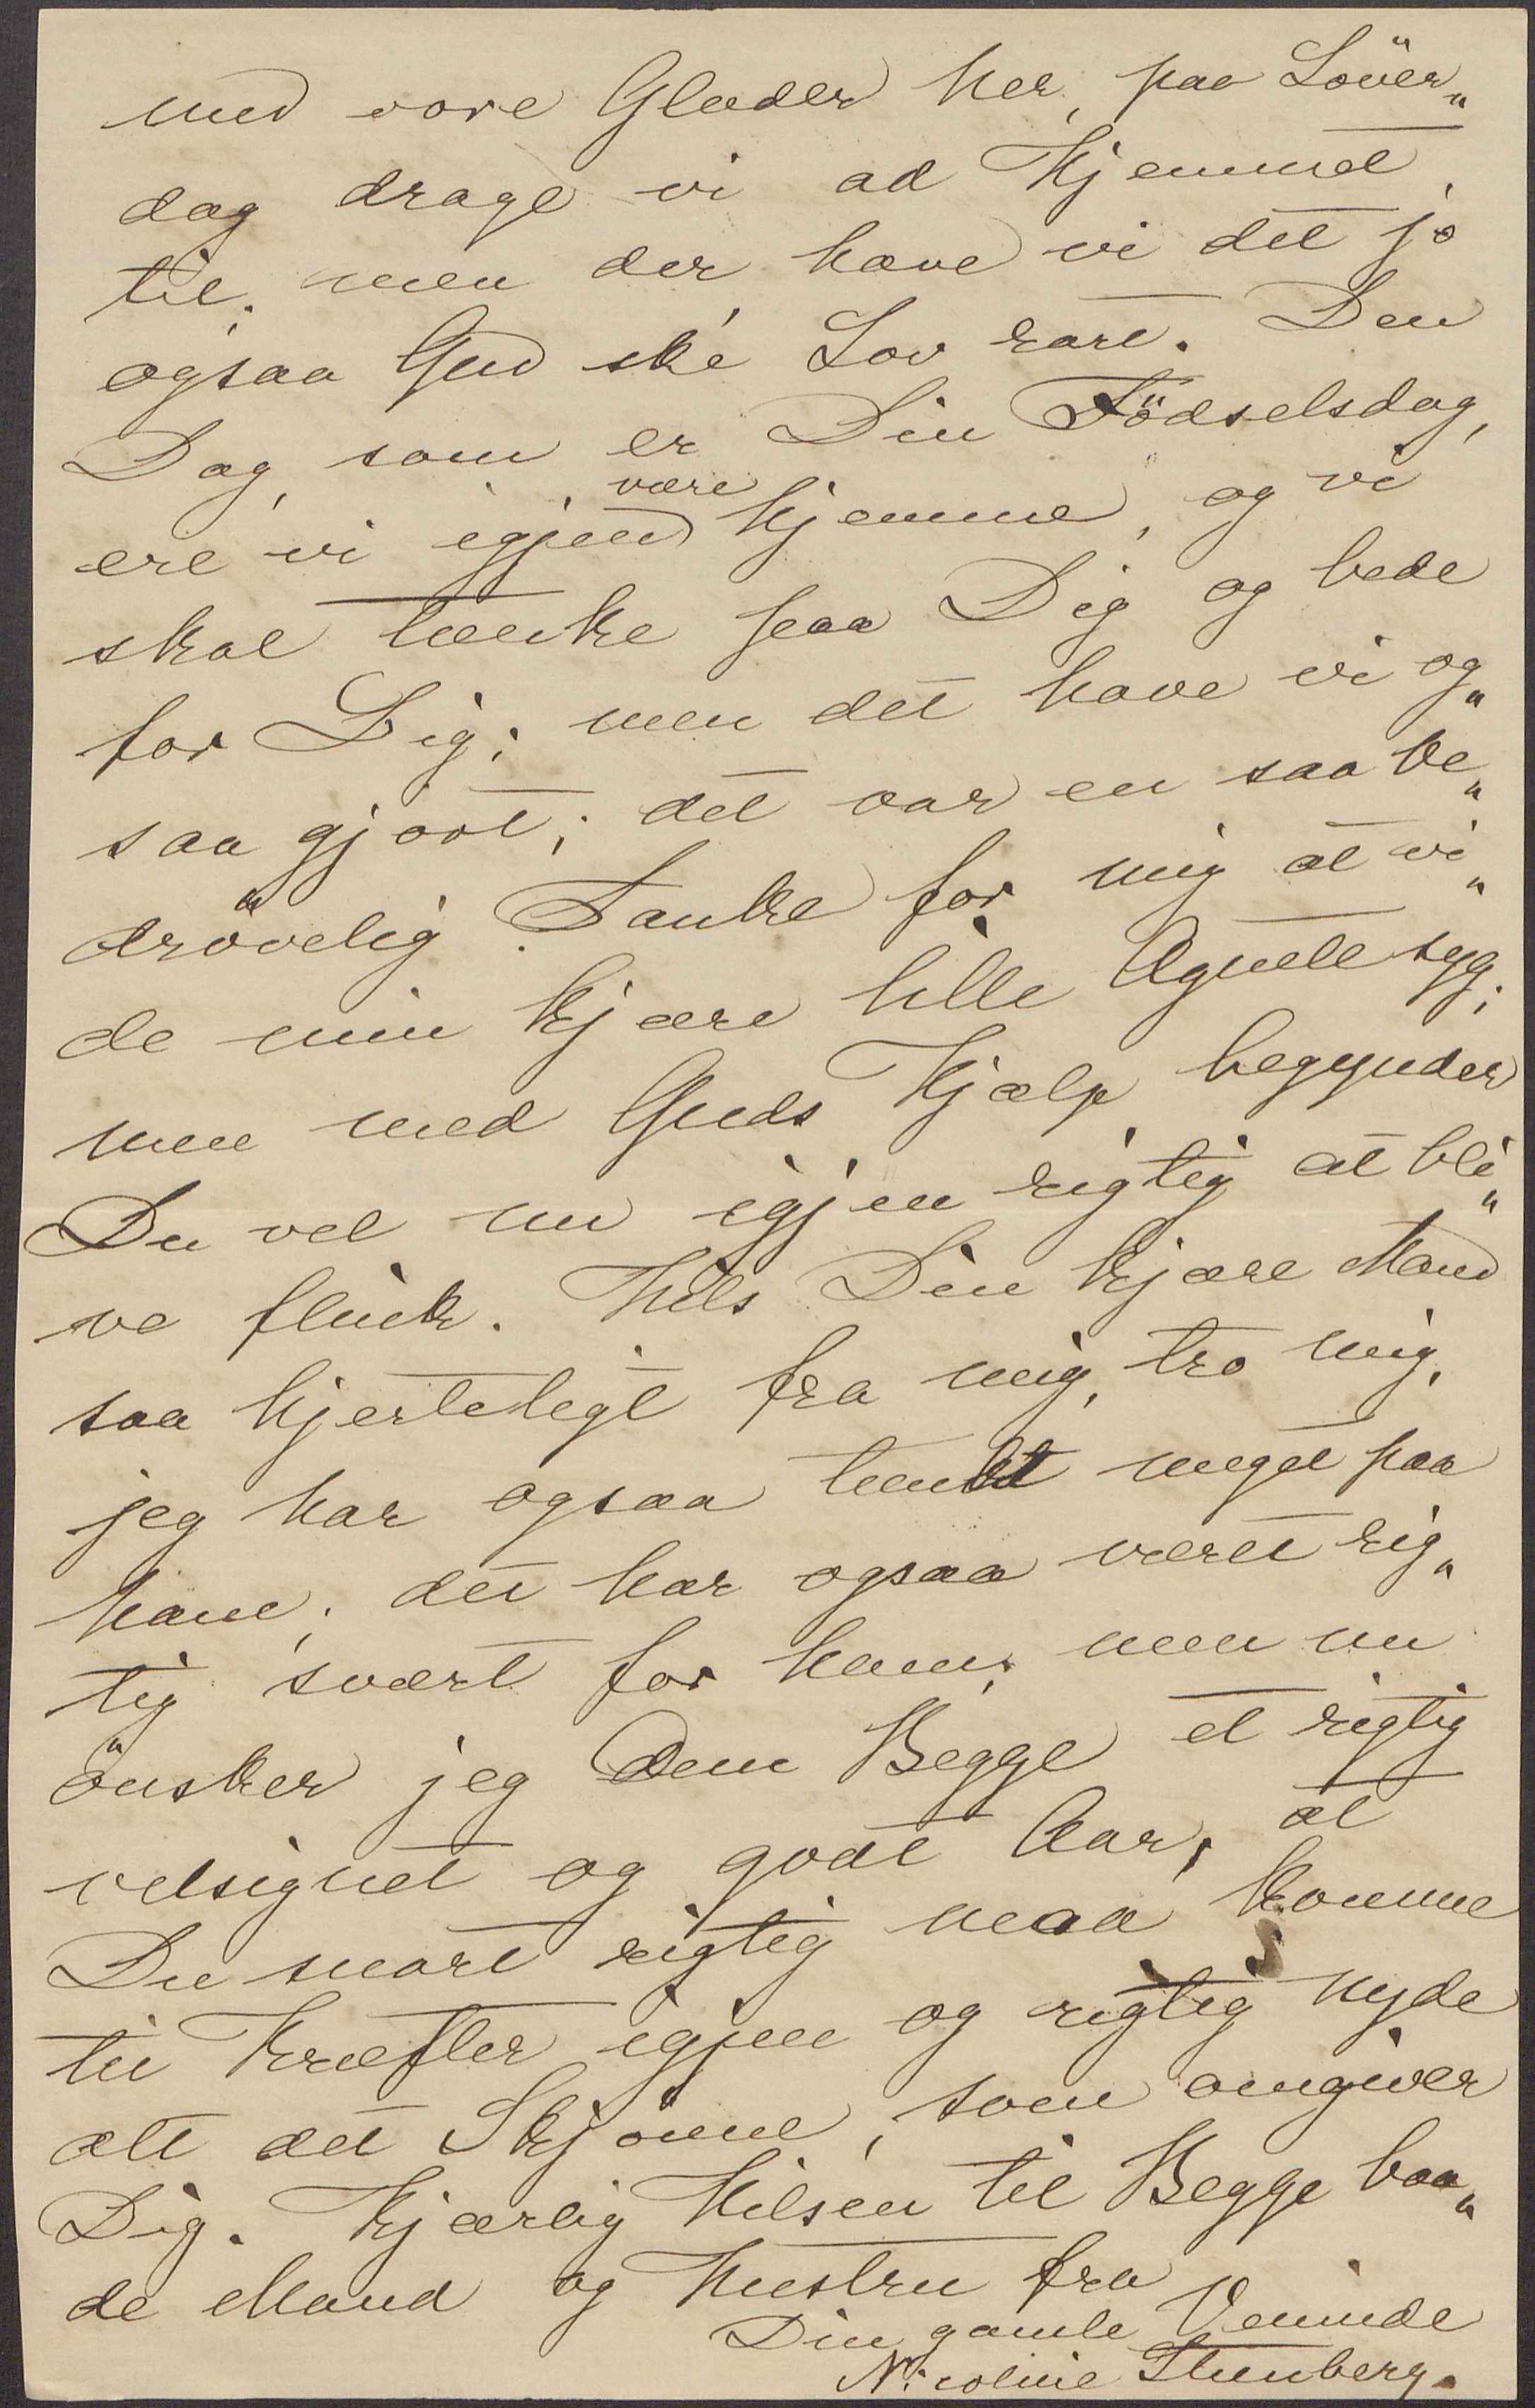 med vore Glæder her, paa Löver„
dag drage vi ad Hjemmet
til; men der have vi det jo
ogsaa Gud ske Lov rart. Den
Dag, som er Din Födselsdag,
ere vi igjen være hjemme, og vi
skal tænke paa Dig og bede
for Dig; men det have vi og„
saa gjort; det var en saa be„
drövelig Tanke for mig at vi„
de min kjære lille Agnete syg;
men med Guds Hjælp begynder
Du vel nu igjen rigtig at bli„
ve flink. Hils Din kjære Mand
saa hjerteligt fra mig, tro mig,
jeg har ogsaa tænkt meget paa
ham; det har ogsaa været rig„
tig svært for ham; men nu
önsker jeg Dem Begge et rigtig
velsignet og godt Aar, at
Du snart rigtig maa komme
til Kræfter igjen og rigtig nyde
alt det Skjönne, som omgiver
Dig. Kjærlig Hilsen til Begge baa„
de Mand og Hustru fra
Din gamle Veninde
Nicoline Stenberg.